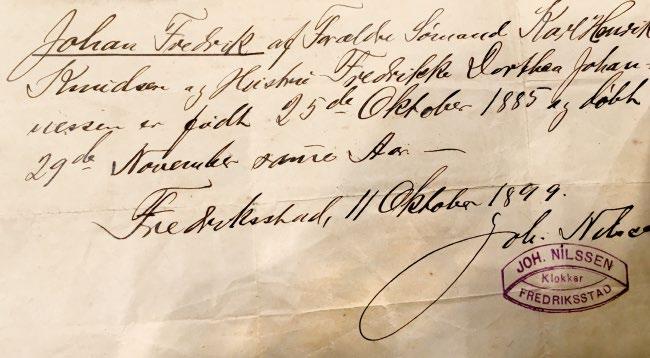 Johan Fredrik af Forældre Sømand Karl Henrik
Knudsen og Hustru Fredrikke Dorthea Johan-
nessen er født 25de Oktober 1885 og døbt
29de November samme Aar —
Fredriksstad, 11 Oktober 1899.
Joh. Nilssen
JOH. NILSSEN
Klokker
FREDRIKSSTAD